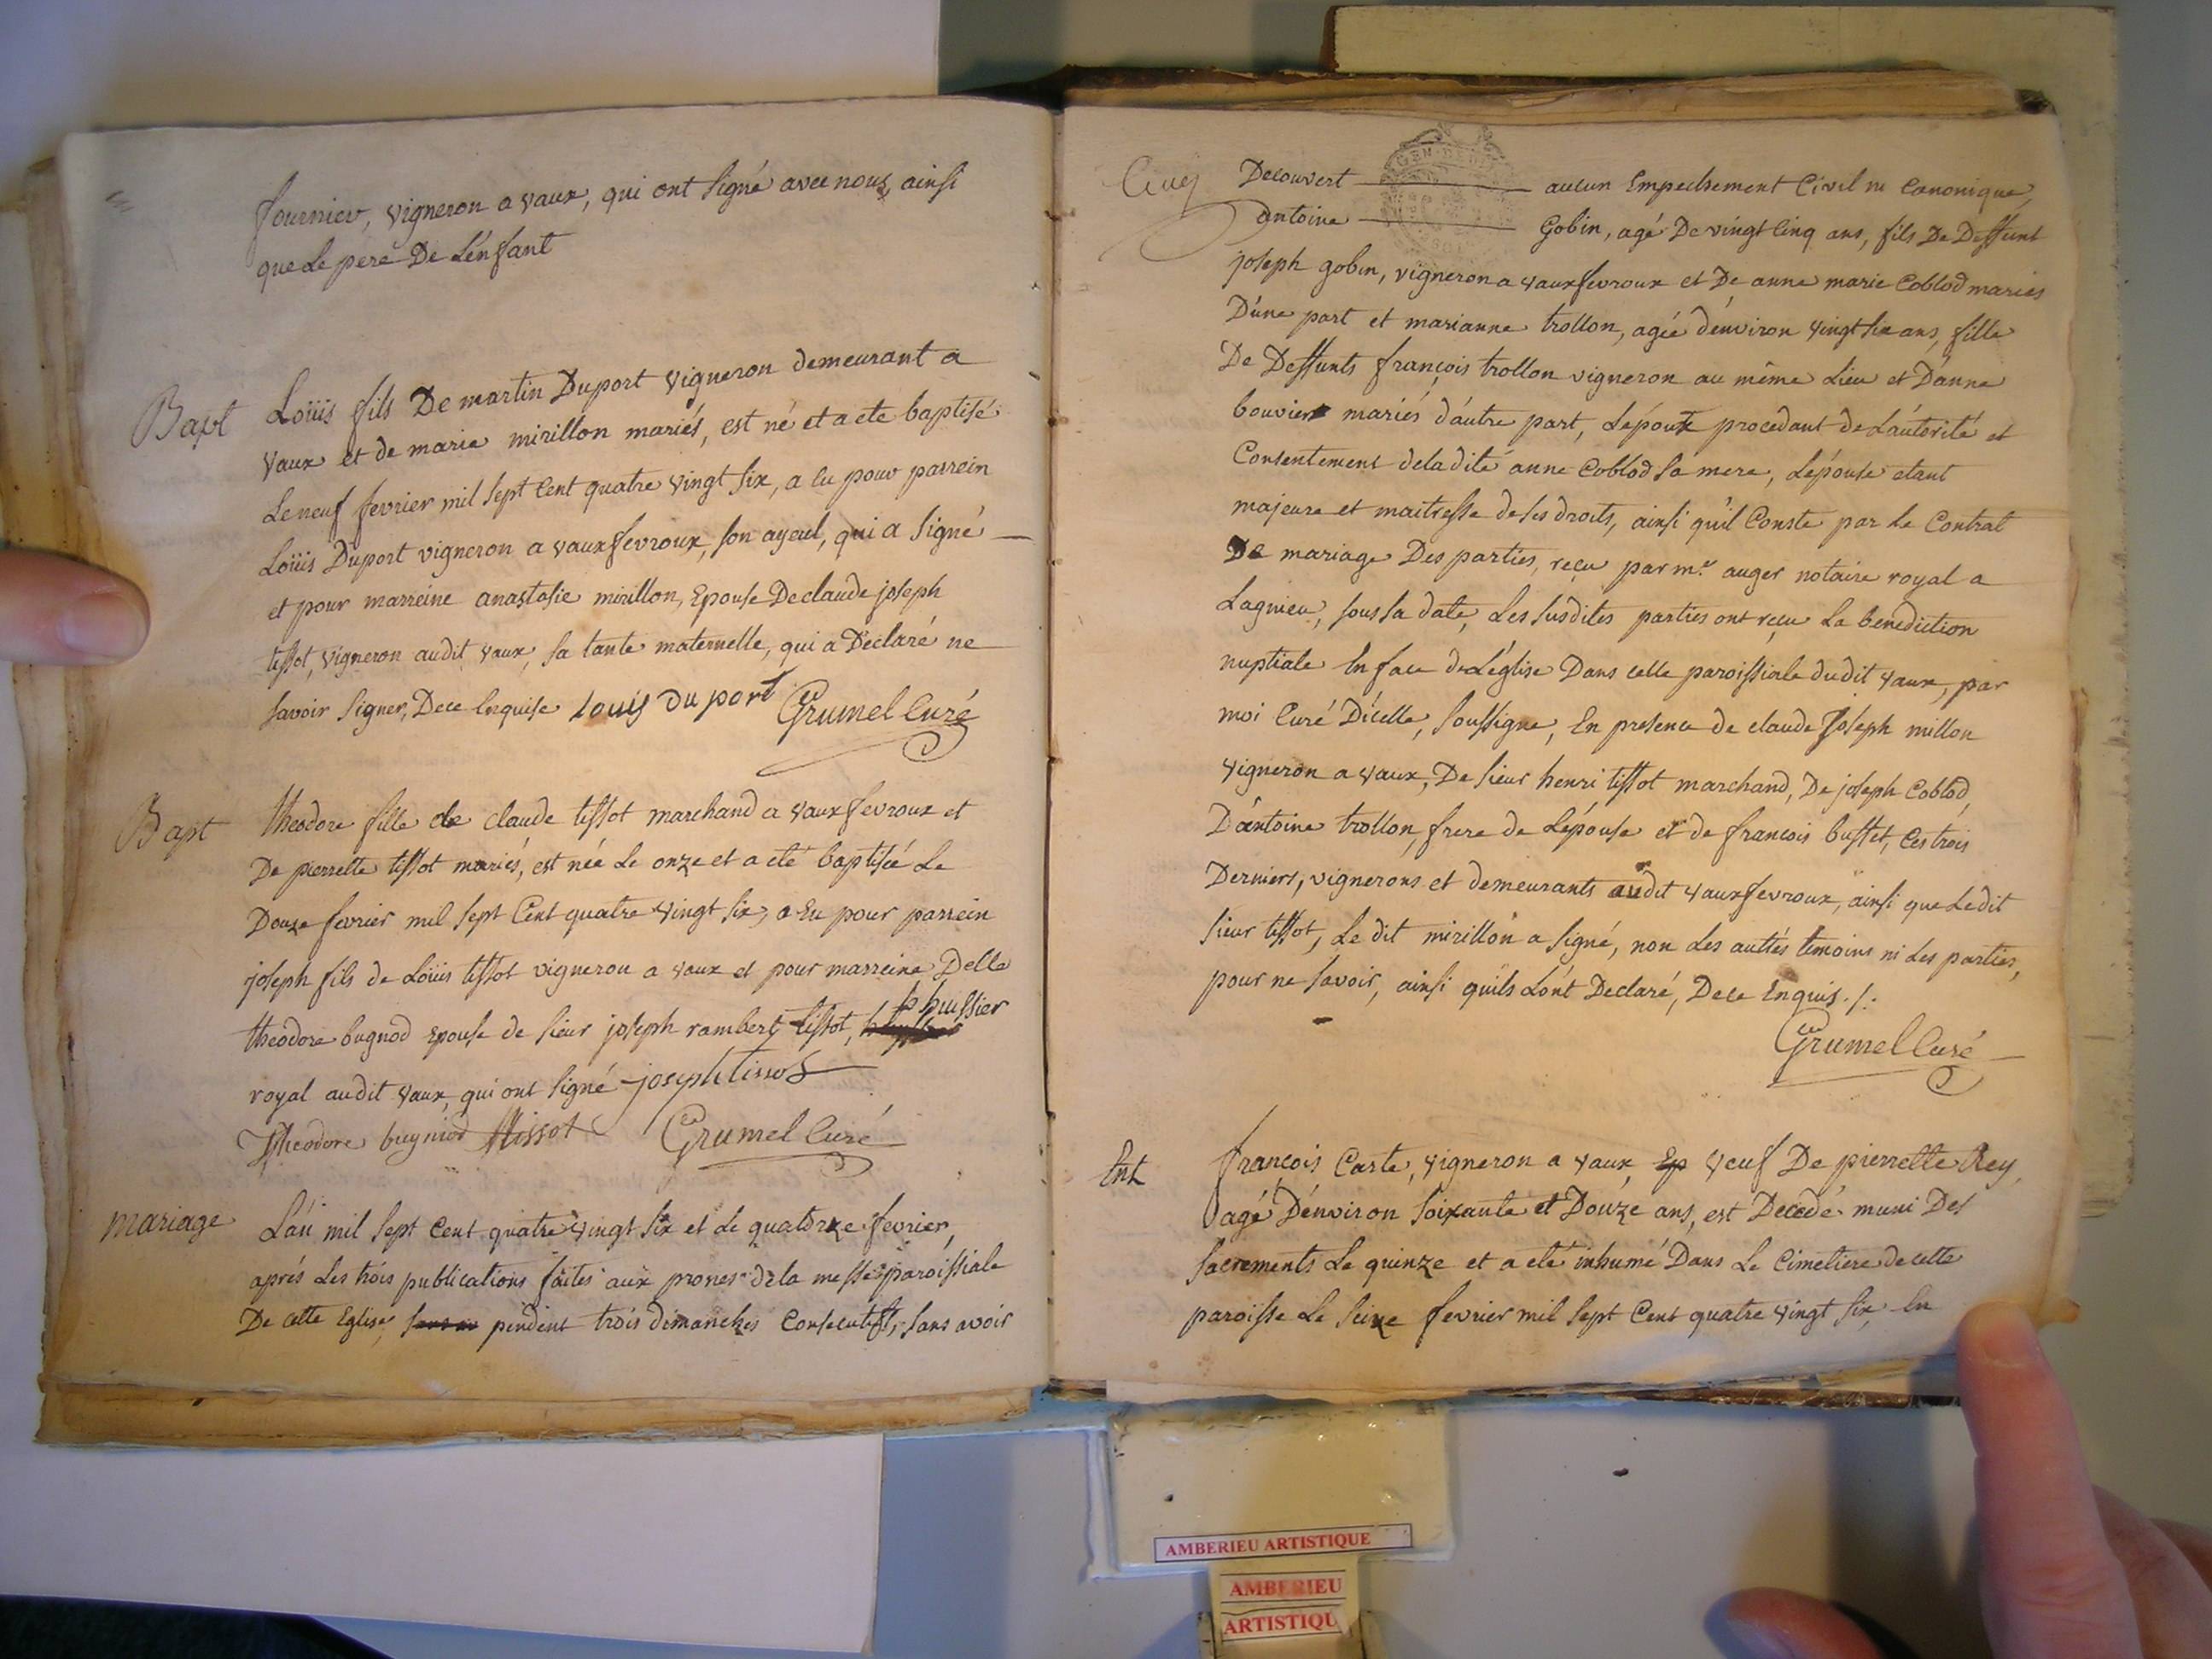 fournier, vigneron a vaux, qui ont signé avec nous, ainsi
que le pere De L'énfant
Bapt
Loüis fils De martin Duport vigneron demeurant a
vaux et de marie mirillon mariés, est né et a ete baptisé
Le neuf fevrier mil sept Cent quatre vingt six, a eu pour parrein
Loüis Duport vigneron a vauxfevroux, son ayeul, qui a signé
et pour marreine anastasie mirillon, Epouse De claude joseph
tissot, vigneron audit vaux, sa tante maternelle, qui a Déclaré ne
savoir signer, De ce Enquise Louis du port Grumel Curé
Bapt
theodore fille de claude tissot marchand a vauxfevroux et
De pierrette tissot mariés, est née Le onze et a eté baptisée Le
Douze fevrier mil sept Cent quatre vingt six, a Eu pour parrein
joseph fils de Loüis tissot vigneron a vaux et pour marreine Delle
theodore bugnod epouse de sieur joseph rambert tissot, huissier
royal audit vaux, qui ont signé joseph tissot
Theodore bugniod tissot Grumel Curé
mariage
L'an mil sept Cent quatre vingt six et Le quatorze fevrier,
aprés Les trois publications faites aux prones de la messe paroissiale
De cette Eglise, pendent trois dimanches Consecutifs, sans avoir
Cinq
Decouvert aucun Empechement Civil ni Canonique,
antoine Gobin, agé De vingt Cinq ans, fils De Deffunt
joseph gobin, vigneron a vauxfevroux et De anne marie Coblod mariés
D'une part et marianne trollon, agée d'énviron vingt six ans, fille
De Deffunts françois trollon vigneron au même Lieu et D'anne
bouvier mariés d'áutre part, L'époux procedant de L'áutorité et
Consentement de la dite anne Coblod sa mere, L'épouse etant
majeure et maitresse de ses droits, ainsi qu'il Conste par Le Contrat
De mariage Des parties, reçu par me. auger notaire royal a
Lagnieu, sous sa date, Les susdites parties ont reçu La benediction
nuptiale En face de L'église Dans celle paroissiale dudit vaux, par
moi Curé D'icelle, soussigne, En presence de claude Joseph millon
vigneron a vaux, De sieur henri tissot marchand, De joseph Coblod,
D'ántoine trollon, frere de L'épouse et de francois buffet, Ces trois
Derniers, vignerons et demeurants audit vauxfevroux, ainsi que Ledit
sieur tissot, Le dit mirillon a signé, non Les autres temoins ni Les parties,
pour ne savoir, ainsi quils L'ónt Declaré, De ce Enquis ./.
Grumel Curé
Ent
françois Carte, vigneron a vaux, Ep veuf De pierrette Rey,
agé D'énviron soixante et Douze ans, est Decedé muni Des
sacrements Le quinze et a eté inhumé Dans Le Cimetiere de cette
paroisse Le seize fevrier mil sept Cent quatre vingt six, En
AMBERIEU ARTISTIQUE
AMBERIEU
ARTISTIQU